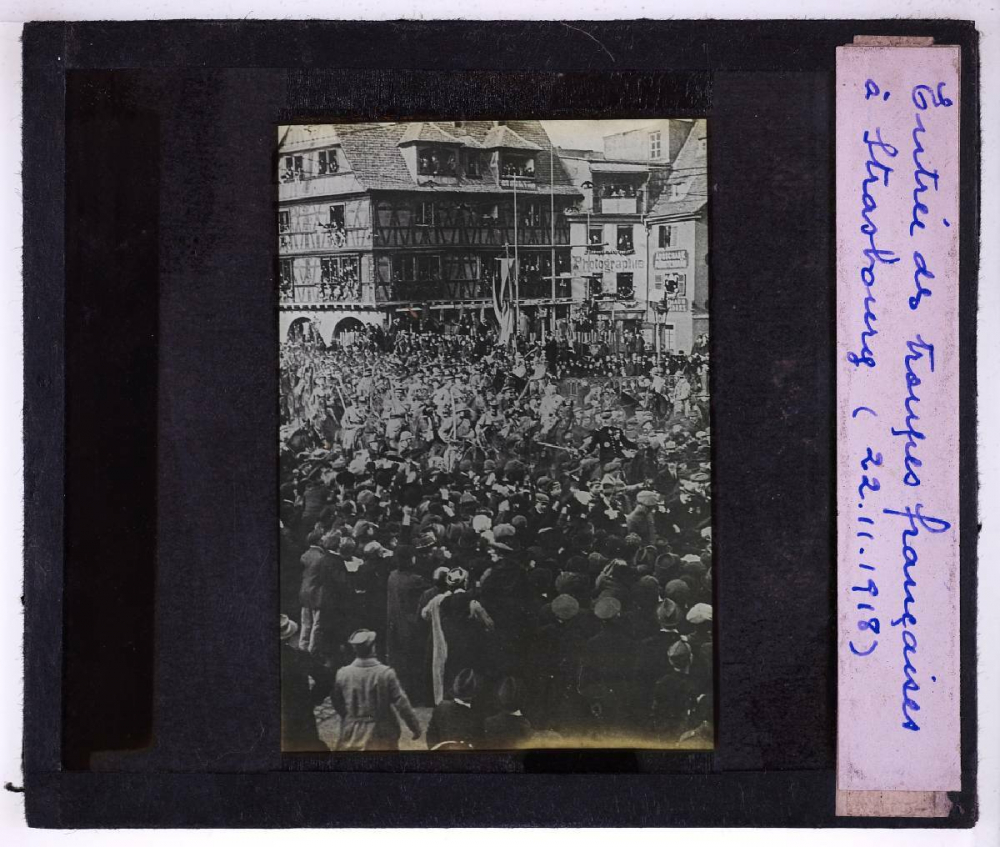 Entrée des troupes françaises
à Strasbourg ( 22.11.1918)
Photographie